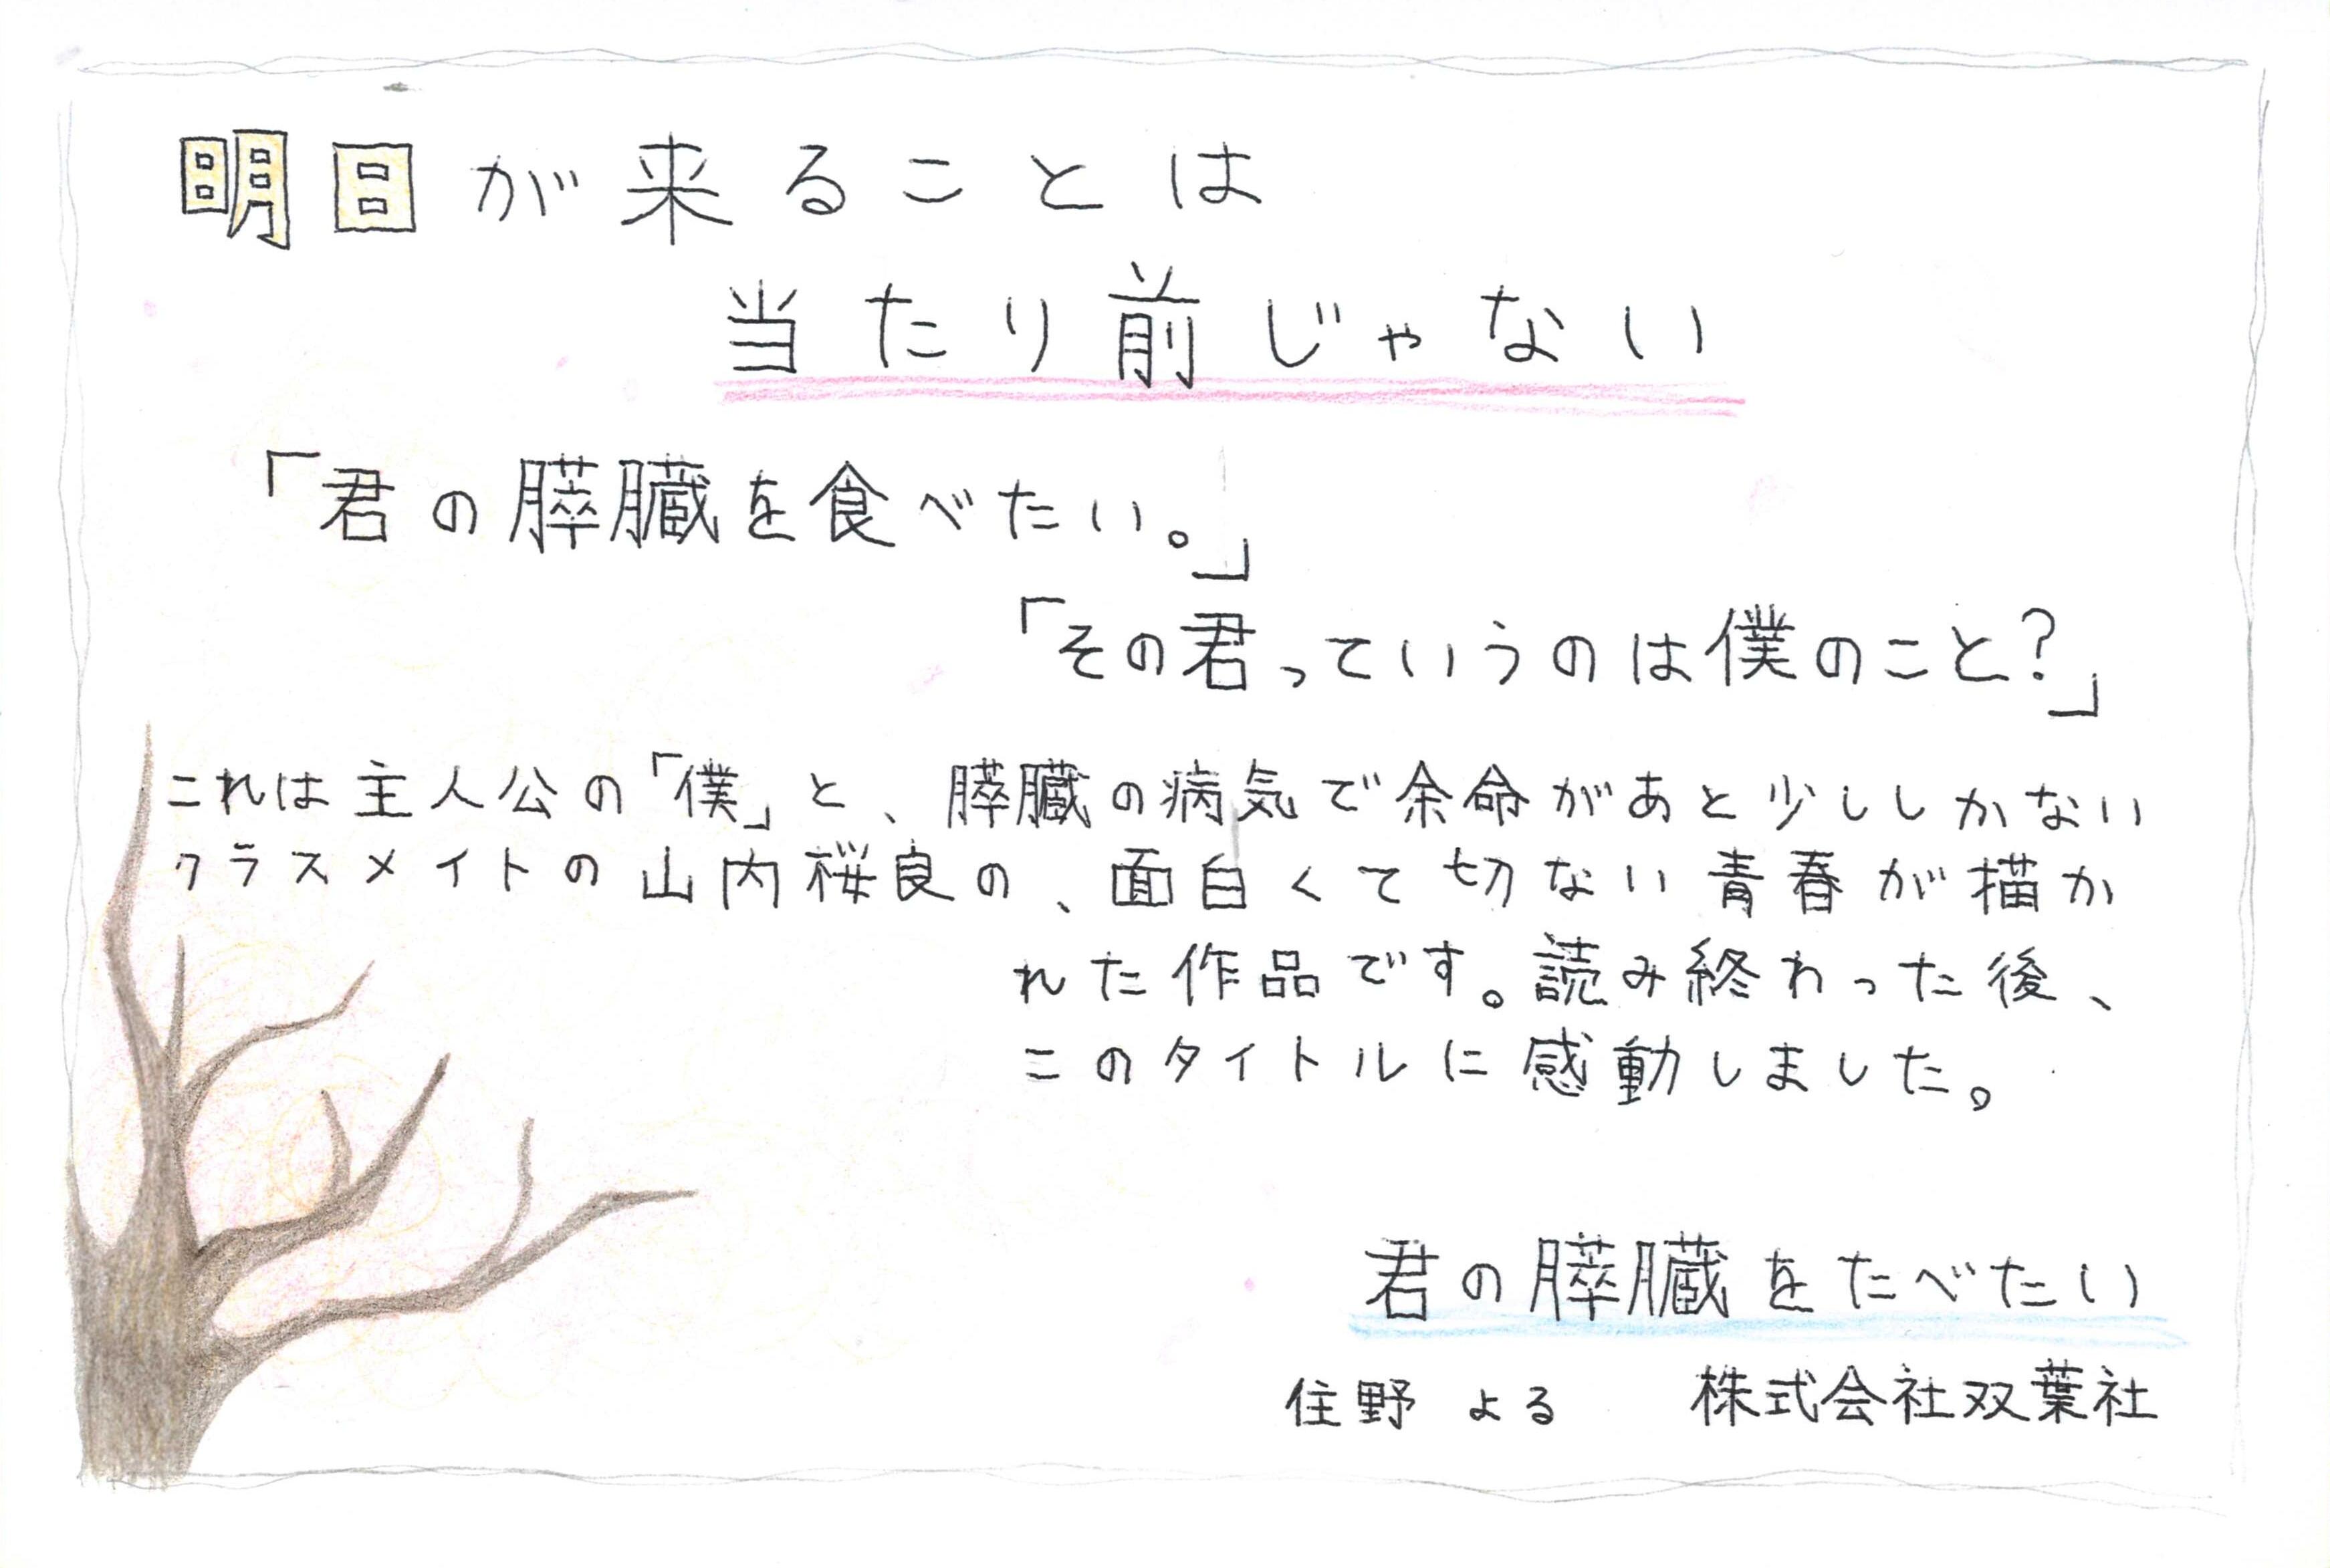 明日が来ることは
当たり前じゃない
「君の膵臓を食べたい。」
「その君っていうのは僕のこと?」
これは主人公の「僕」と、膵臓の病気で余命があと少ししかない
クラスメイトの山内桜良の、面白くて切ない青春が描か
れた作品です。読み終わった後、
このタイトルに感動しました。
君の膵臓をたべたい
住野 よる 株式会社双葉社